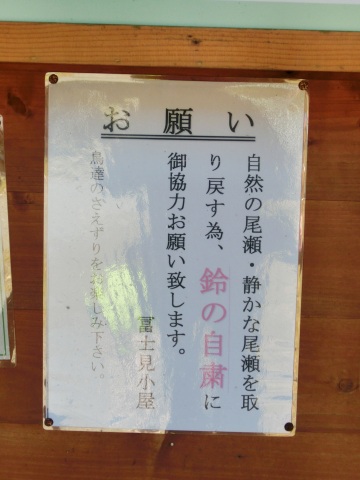 お願い
自然の尾瀬・静かな尾瀬を取
り戻す為、鈴の自粛に
御協力お願い致します。
富士見小屋
鳥達のさえずりをお楽しみ下さい。